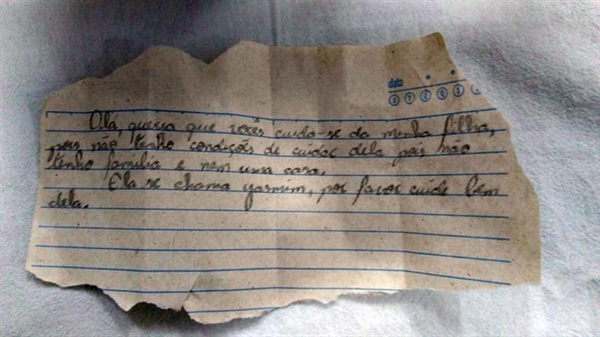 data
Ola, queria que vocês cuida-se da minha filha,
pois não tenho condições de cuidar dela pois não
tenho família e nem uma casa.
Ela se chama yasmim, por favor cuide bem
dela.